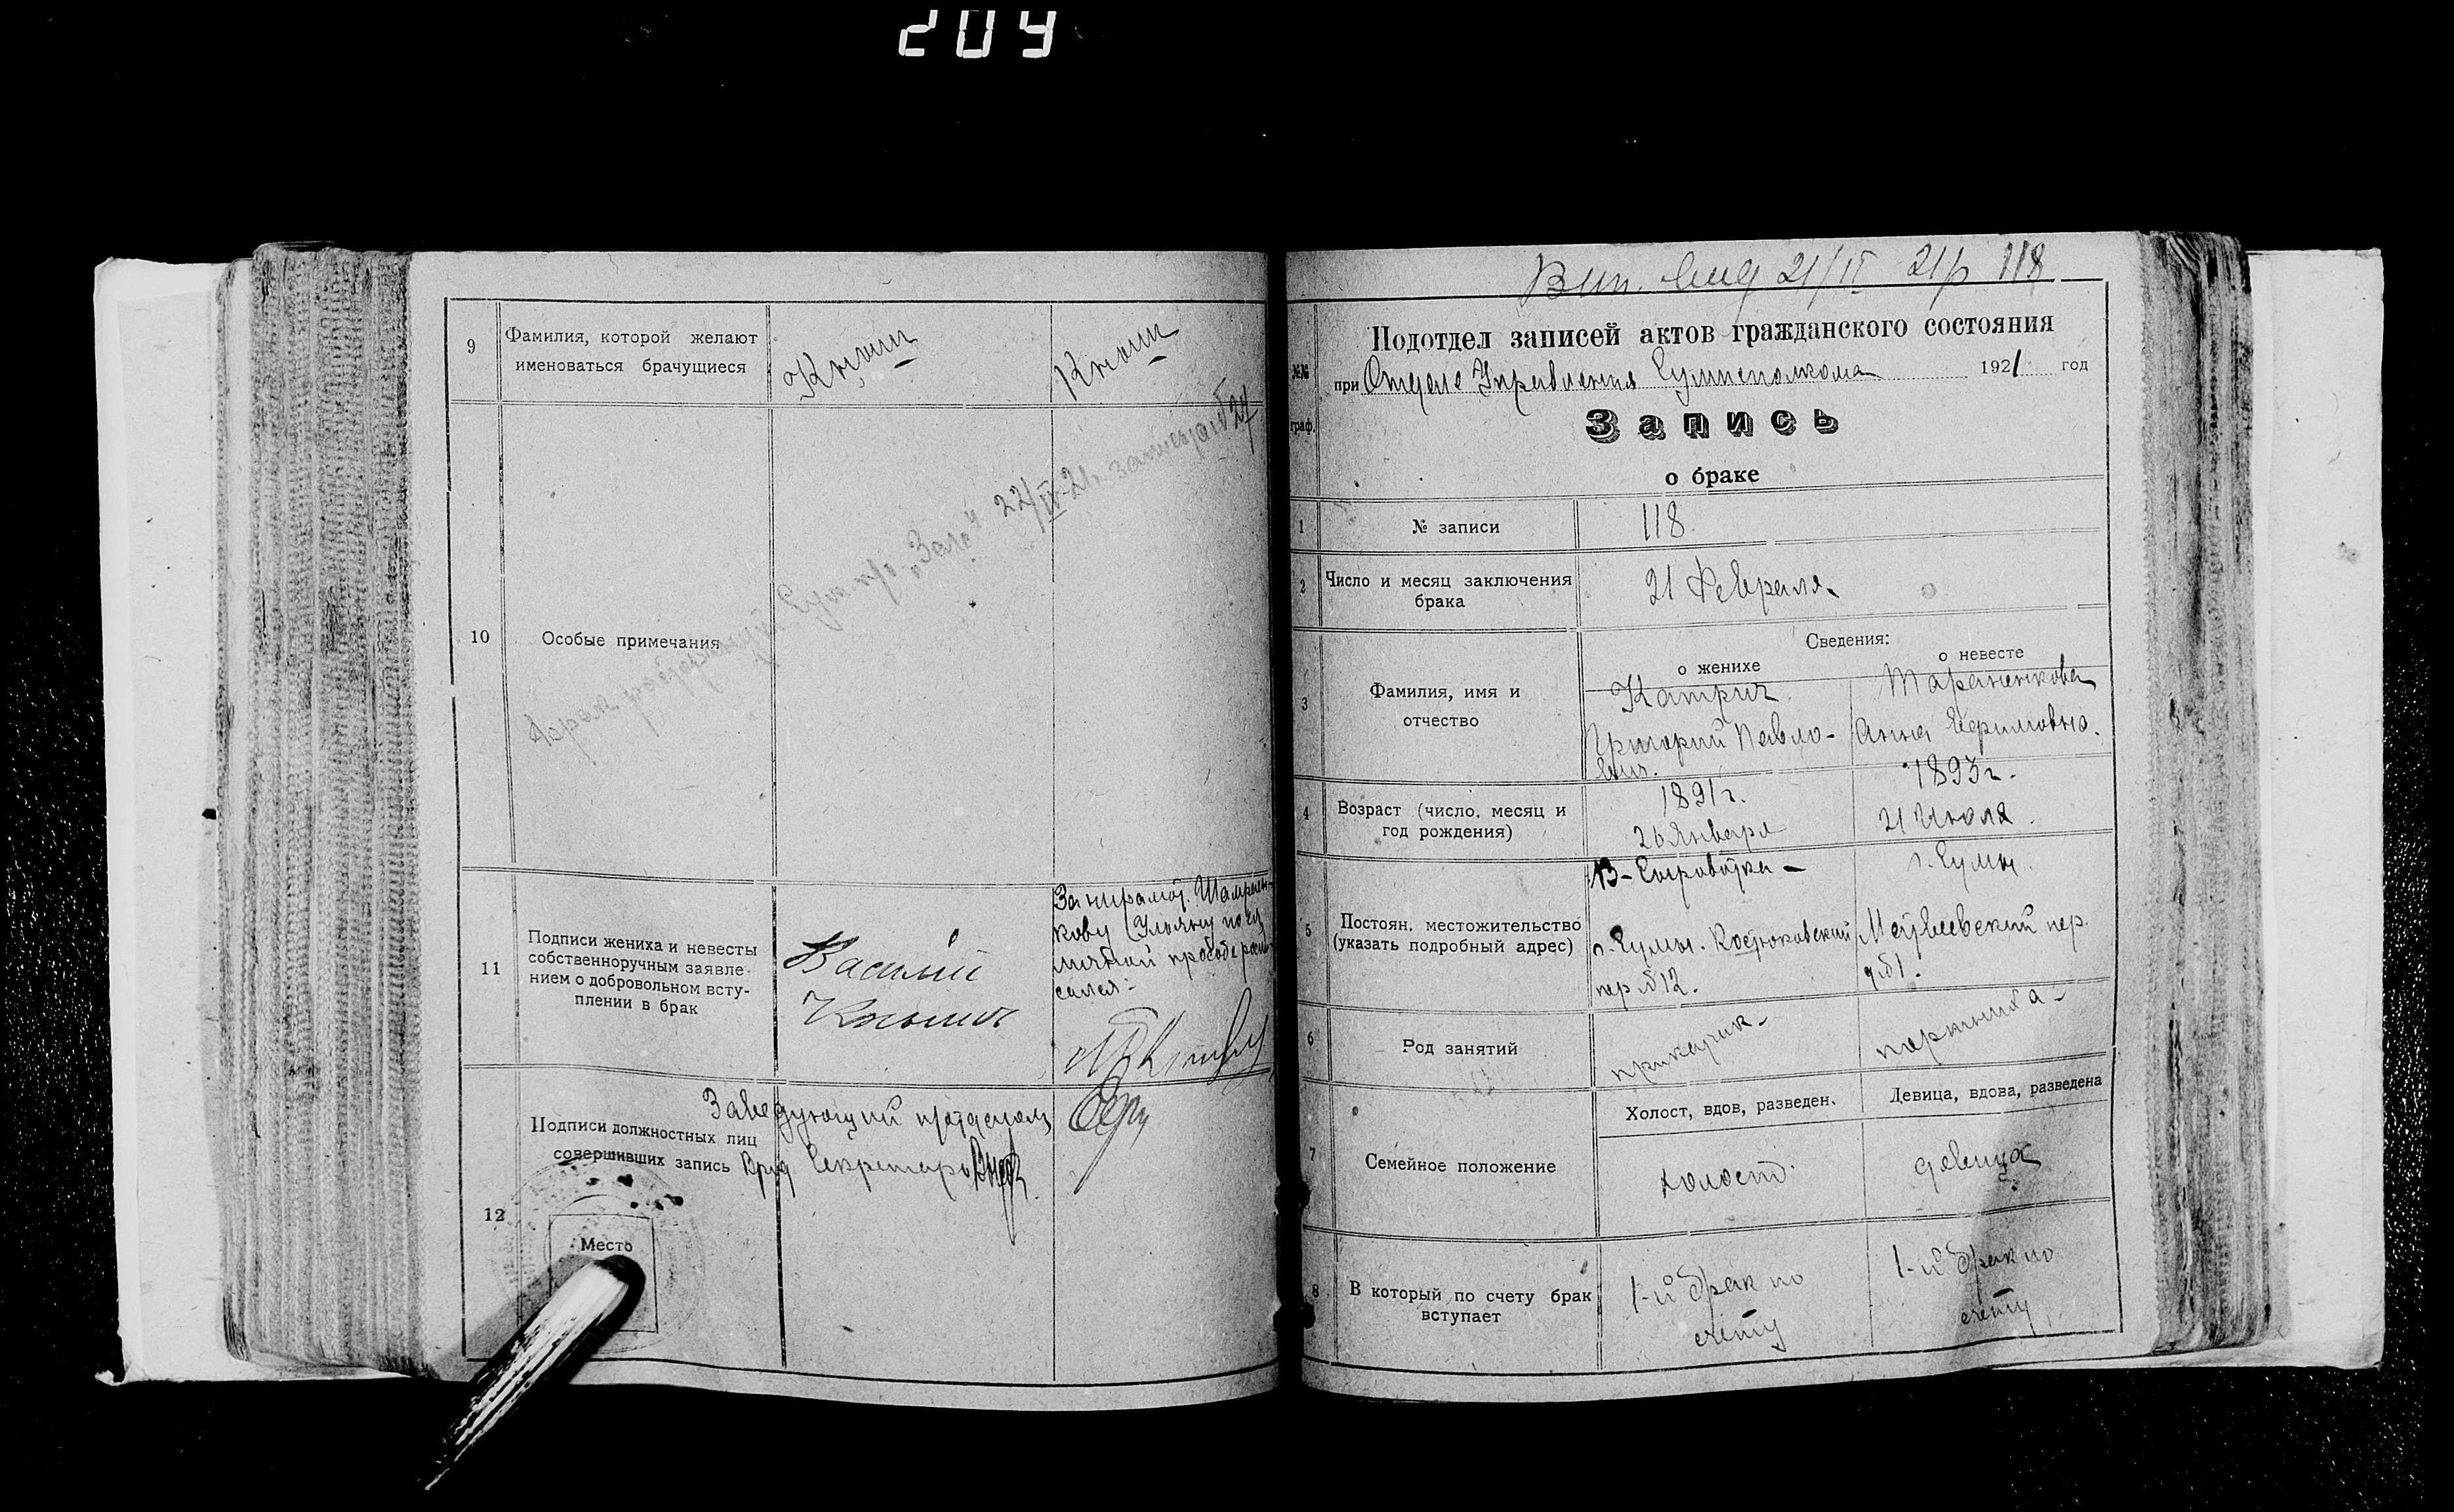 204
9
Фамилия, которой желают
именоваться брачущиеся
Кныш
Кныш
10
Особые примечания
Брак Сум. "Загс" 22/IV-21г.
11
Подписи жениха и невесты
собственноручным заявле-
нием о добровольном всту-
плении в брак
Василий
Кныш
За неграмот.
кову Ульяну по ея
личной просьбе распи-
сался:
12
Подписи должностных лиц
совершивших запись
Заведующий
Врид Секретаря
Место
Вып. 21/II 21р 118
№№
граф.
Подотдел записей актов гражданского состояния
при Отделе Управления Сумисполкома 1921 год
Запись
о браке
1
№ записи
118
2
Число и месяц заключения
брака
21 Февраля
Сведения:
о женихе
о невесте
3
Фамилия, имя и
отчество
Катрич
Григорий Павло-
вич.
Анна Ефимовна.
4
Возраст (число, месяц и
год рождения)
1891 г.
26 Января
1893 г.
21 Июля.
5
Постоян. местожительство
(указать подробный адрес)
В-Сыроватка -
г. Сумы. Костюковский
пер №12.
г. Сумы.
пер.
д №1.
6
Род занятий
7
Семейное положение
Холост, вдов, разведен.
Девица, вдова, разведена
холост.
девица
8
В который по счету брак
вступает
1-й брак по
счету
1-й брак по
счету